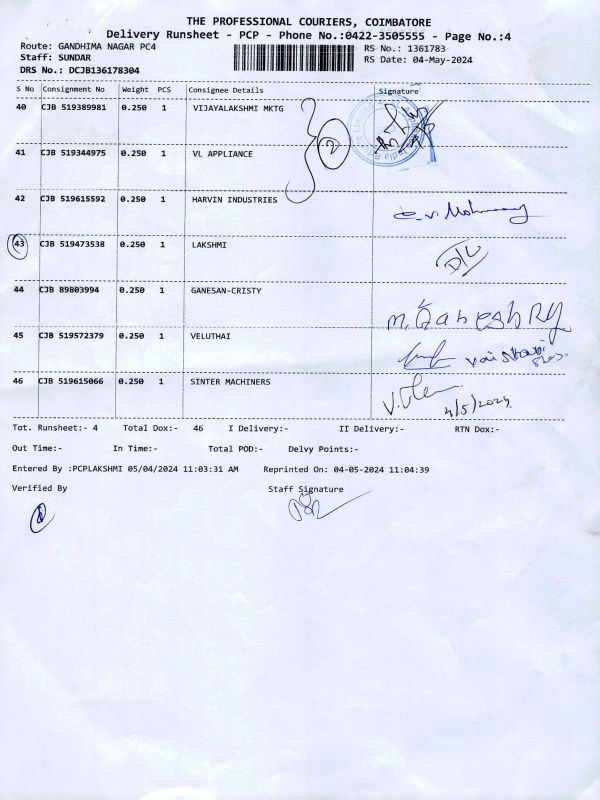 THE PROFESSIONAL COURIERS, COIMBATORE
Delivery Runsheet - PCP - Phone No.:0422-3505555 - Page No.:4
Route: GANDHIMA NAGAR PC4 RS No.: 1361783
Staff: SUNDAR RS Date: 04-May-2024
DRS No.: DCJB136178304
S No Consignment No Weight PCS Consignee Details Signature
40 CJB 519389981 0.250 1 VIJAYALAKSHMI MKTG
2
41 CJB 519344975 0.250 1 VL APPLIANCE
42 CJB 519615592 0.250 1 HARVIN INDUSTRIES
43 CJB 519473538 0.250 1 LAKSHMI D/L
44 CJB 89803994 0.250 1 GANESAN-CRISTY
45 CJB 519572379 0.250 1 VELUTHAI
46 CJB 519615066 0.250 1 SINTER MACHINERS
4/5/2024
Tot. Runsheet:- 4 Total Dox:- 46 I Delivery:- II Delivery:- RTN Dox:-
Out Time:- In Time:- Total POD:- Delvy Points:-
Entered By :PCPLAKSHMI 05/04/2024 11:03:31 AM Reprinted On: 04-05-2024 11:04:39
Verified By Staff Signature